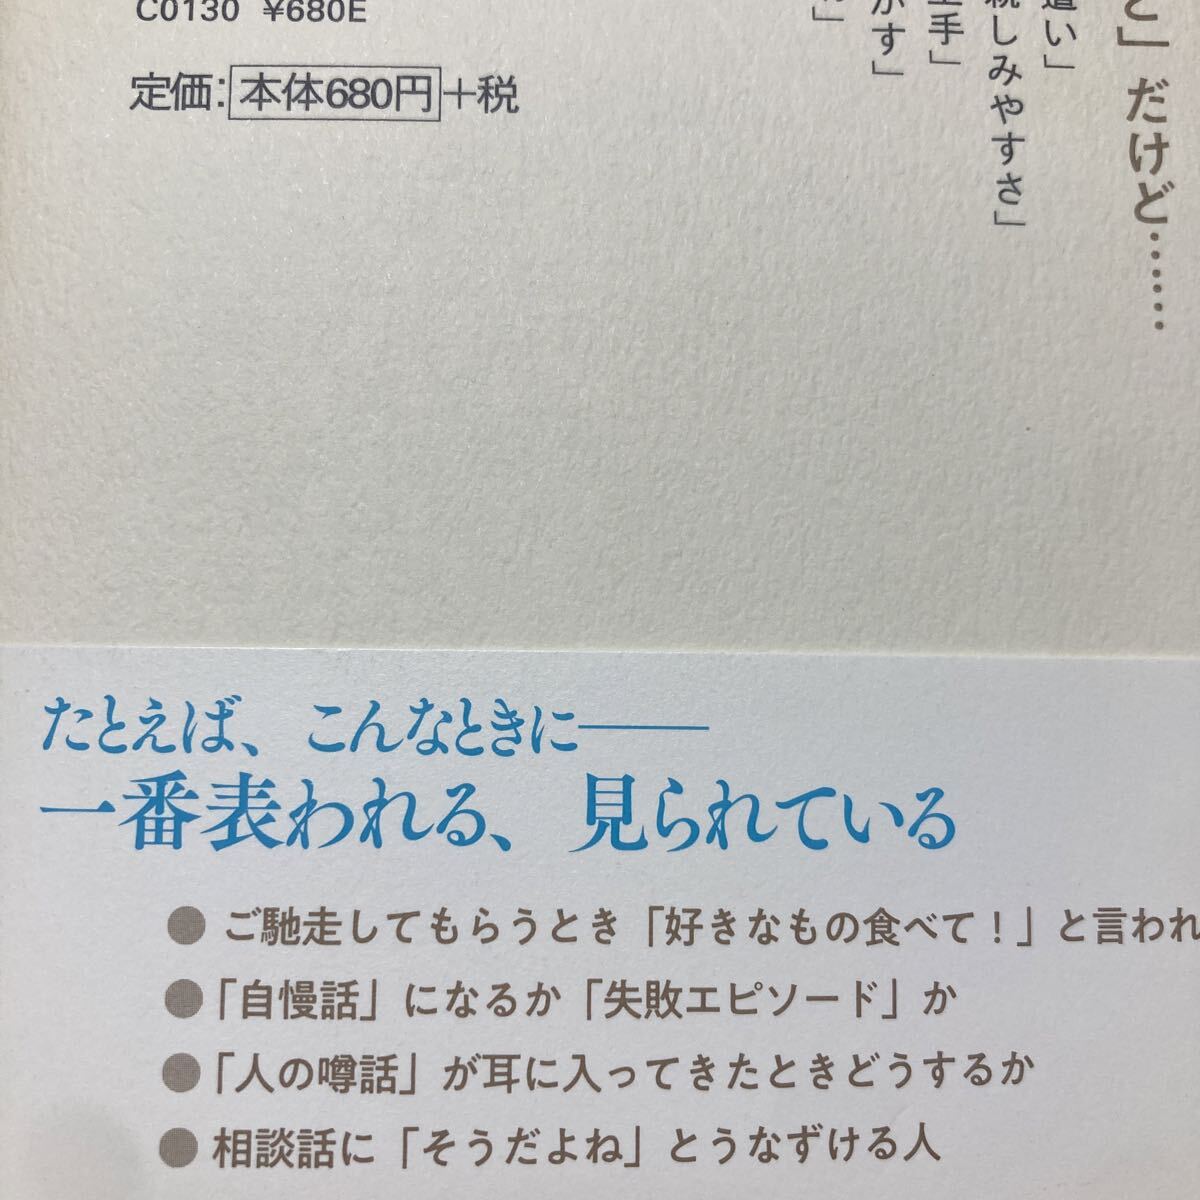 C0130 ¥680E
定価:本体680円+税
と」だけど……
遣い」
親しみやすさ」
上手」
かす」
たとえば、こんなときに――
一番表われる、見られている
●ご馳走してもらうとき「好きなもの食べて！」と言われ
●「自慢話」になるか「失敗エピソード」か
●「人の噂話」が耳に入ってきたときどうするか
●相談話に「そうだよね」とうなずける人